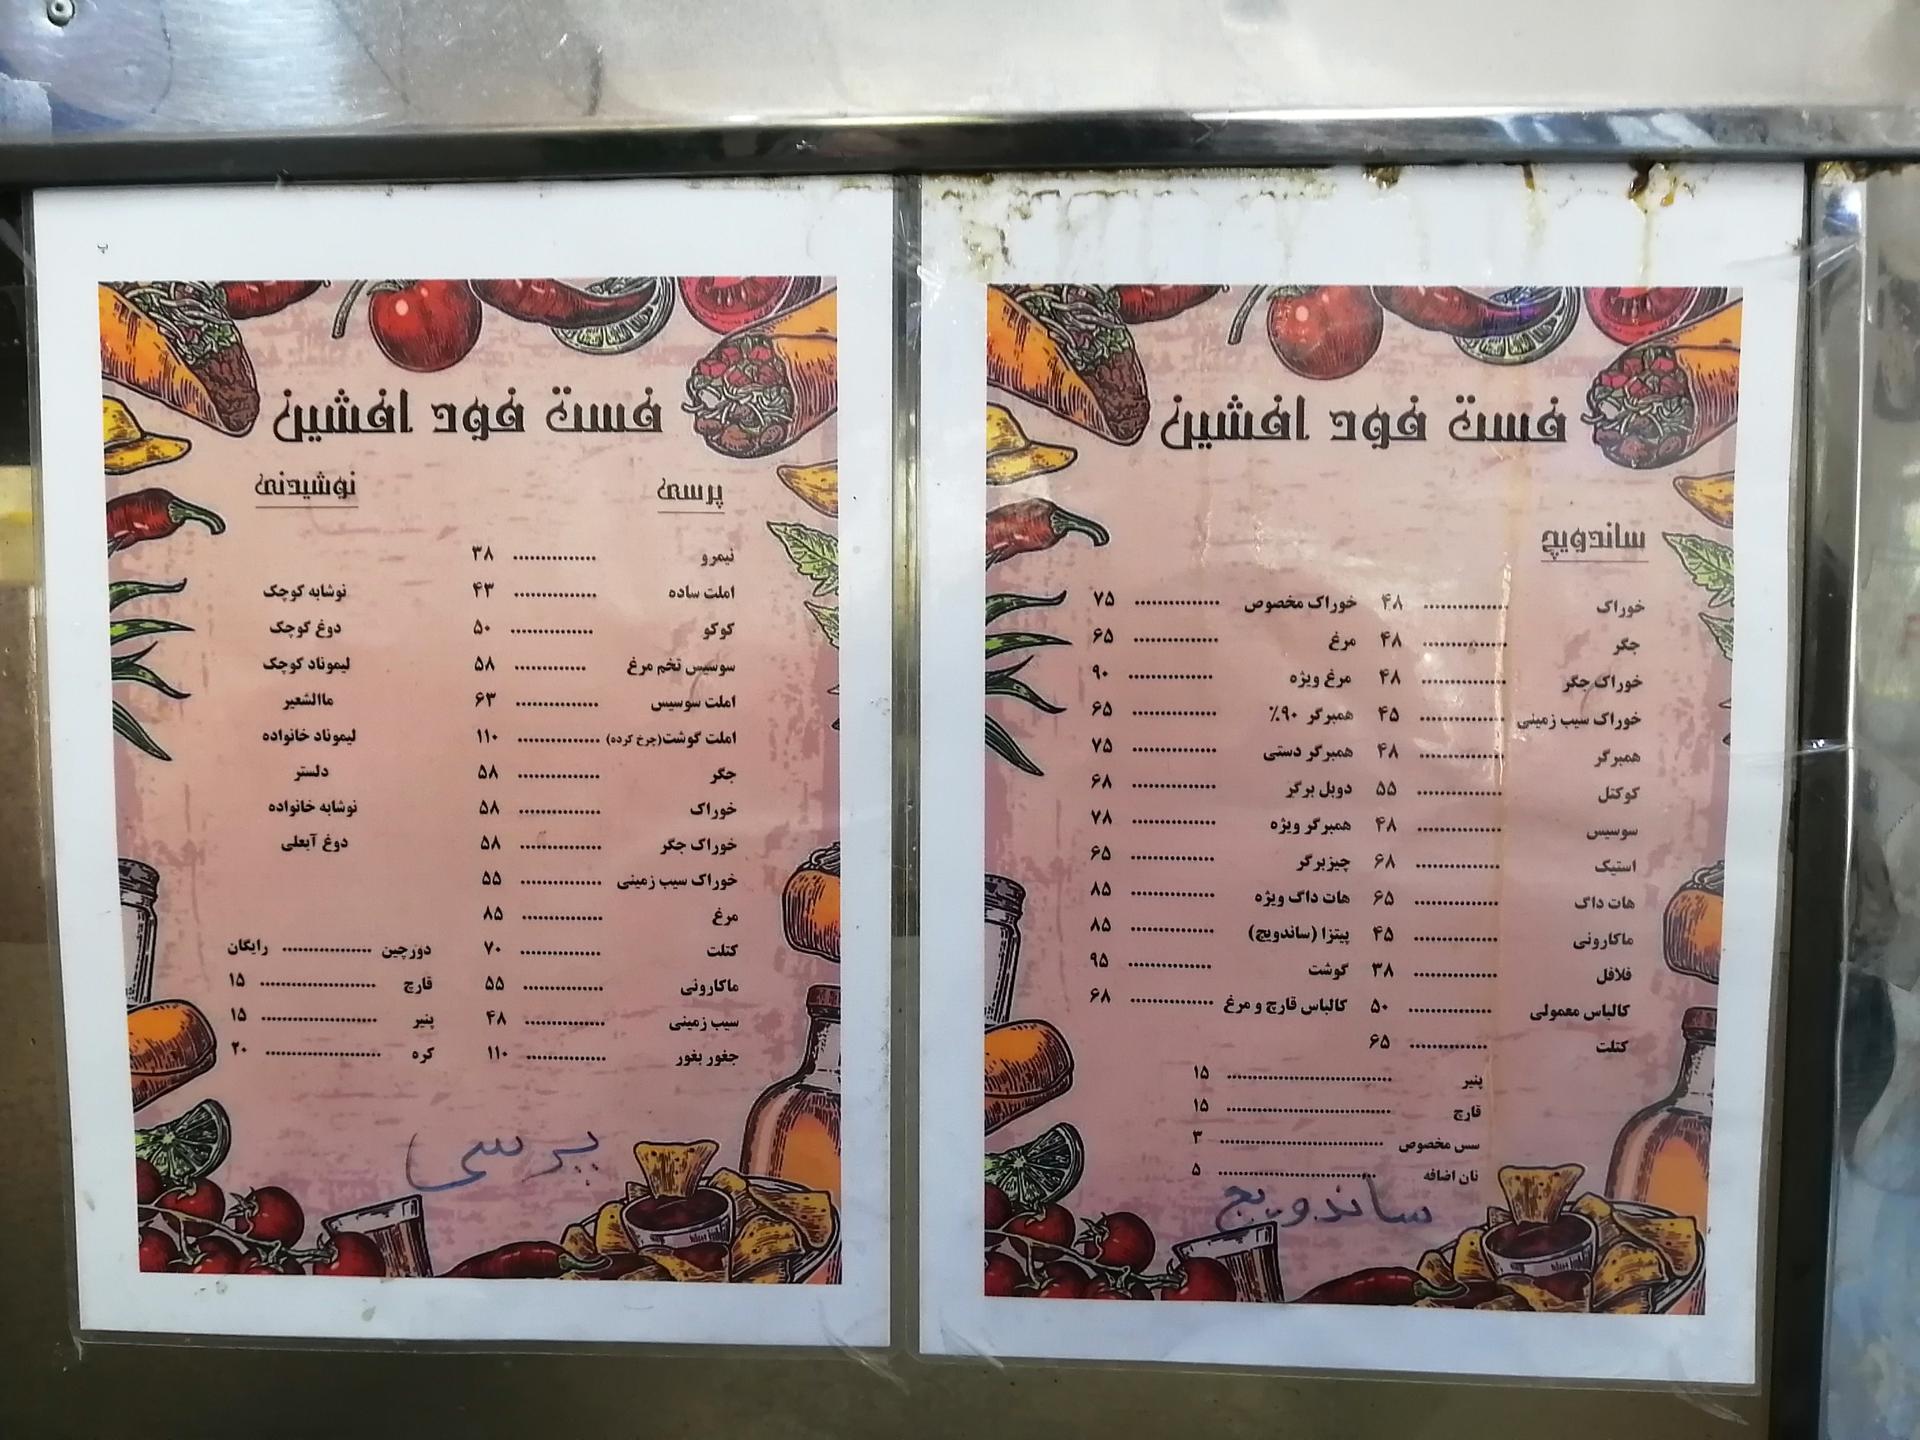 فست فود افشین
ساندویچ
خوراک ............... ۴۸ خوراک مخصوص ............... ۷۵
جگر ............... ۴۸ مرغ ............... ۶۵
خوراک جگر ............... ۴۸ مرغ ویژه ............... ۹۰
خوراک سیب زمینی ............... ۴۵ همبرگر ۹۰٪ ............... ۶۵
همبرگر ............... ۴۸ همبرگر دستی ............... ۷۵
کوکتل ............... ۵۵ دوبل برگر ............... ۶۸
سوسیس ............... ۴۸ همبرگر ویژه ............... ۷۸
استیک ............... ۶۸ چیزبرگر ............... ۶۵
هات داگ ............... ۶۵ هات داگ ویژه ............... ۸۵
ماکارونی ............... ۴۵ پیتزا (ساندویچ) ............... ۸۵
فلافل ............... ۳۸ گوشت ............... ۹۵
کالباس معمولی ............... ۵۰ کالباس قارچ و مرغ ............... ۶۸
کتلت ............... ۶۵
پنیر ............... ۱۵
قارچ ............... ۱۵
سس مخصوص ............... ۳
نان اضافه ............... ۵
ساندویچ
فست فود افشین
پرسی
نیمرو ............... ۳۸
املت ساده ............... ۴۳
کوکو ............... ۵۰
سوسیس تخم مرغ ............... ۵۸
املت سوسیس ............... ۶۳
املت گوشت(چرخ کرده) ............... ۱۱۰
جگر ............... ۵۸
خوراک ............... ۵۸
خوراک جگر ............... ۵۸
خوراک سیب زمینی ............... ۵۵
مرغ ............... ۸۵
کتلت ............... ۷۰
ماکارونی ............... ۵۵
سیب زمینی ............... ۴۸
جغور بغور ............... ۱۱۰
نوشیدنی
نوشابه کوچک
دوغ کوچک
لیموناد کوچک
ماالشعیر
لیموناد خانواده
دلستر
نوشابه خانواده
دوغ آبعلی
دورچین ............... رایگان
قارچ ............... ۱۵
پنیر ............... ۱۵
کره ............... ۲۰
پرسی